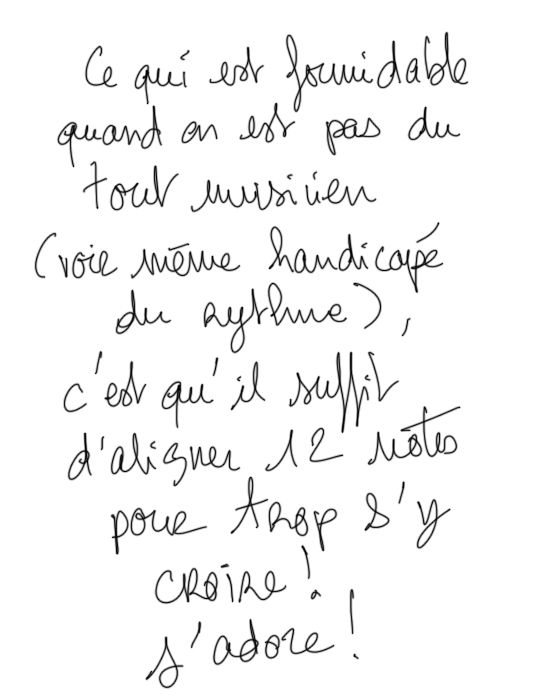 Ce qui est formidable
quand on est pas du
tout musicien
(voie même handicapé
du rythme),
c'est qu'il suffit
d'aligner 12 notes
pour trop s'y
croire !
J'adore !